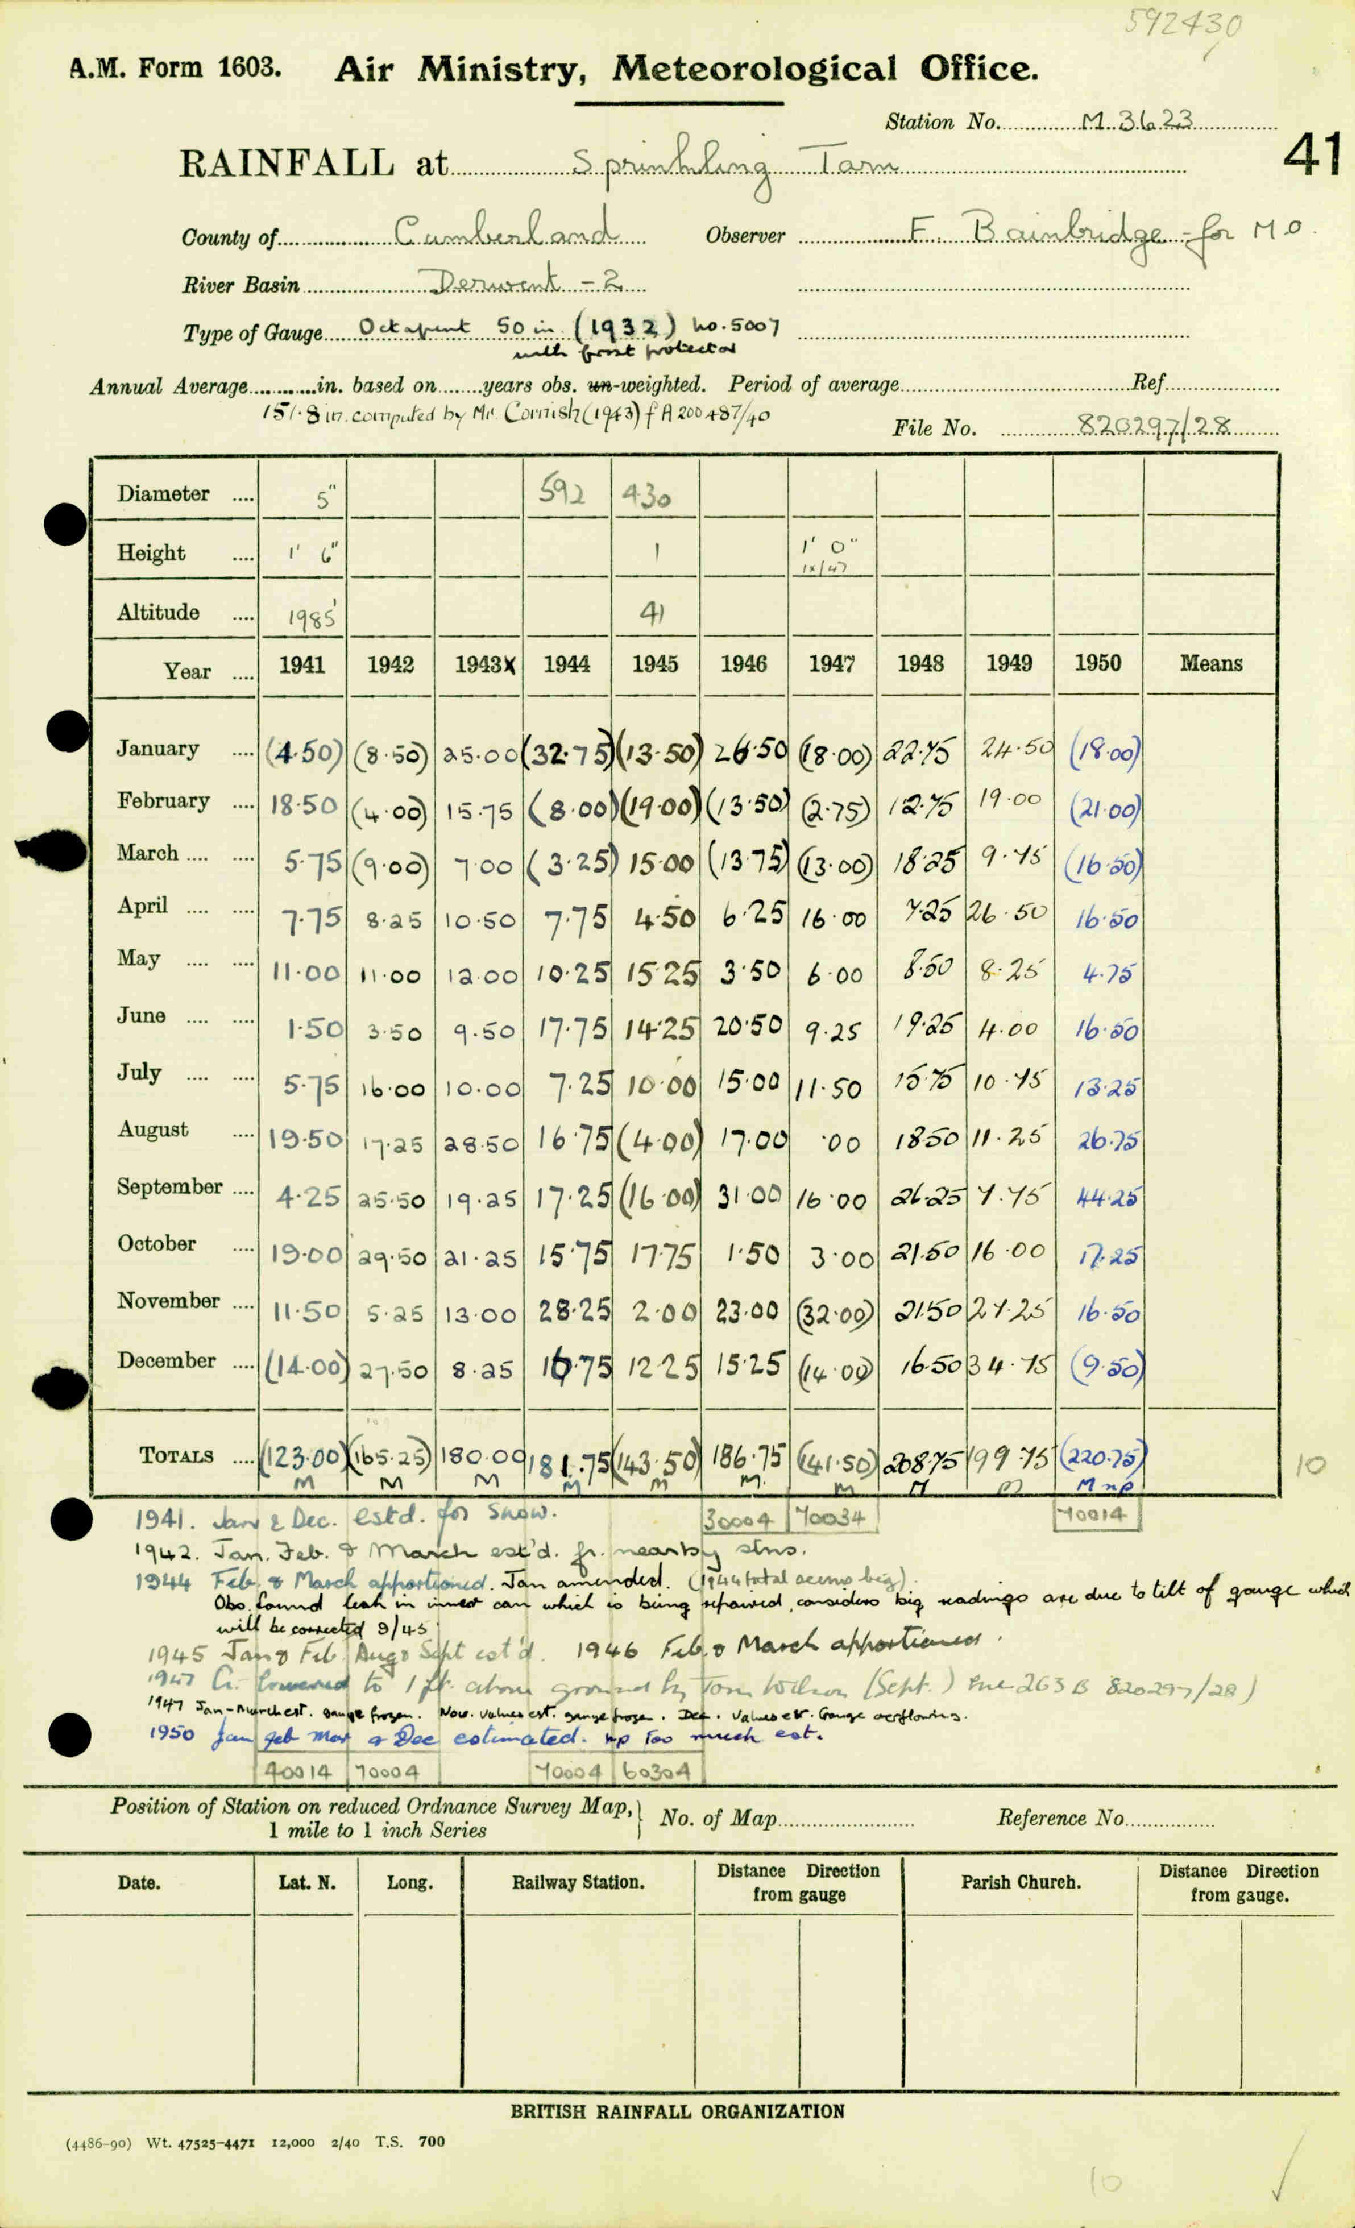 592430
A.M. Form 1603. Air Ministry, Meteorological Office.
Station No. M 3623
41
RAINFALL at Sprinkling Tarn
County of Cumberland Observer F. Bainbridge - for M.O.
River Basin Derwent - 2
Type of Gauge Octapent 50 in (1932) No. 5007
with frost protector
Annual Average in. based on years obs. un-weighted. Period of average Ref
151.8 in. computed by Mr. Cornish (1943) f A 200487/40
File No. 820297/28
Diameter .... 5" 592 430
Height .... 1' 6" 1 1' 0"
1x/47
Altitude .... 1985' 41
Year .... 1941 1942 1943X 1944 1945 1946 1947 1948 1949 1950 Means
January .... (4.50) (8.50) 25.00 (32.75) (13.50) 26.50 (18.00) 22.75 24.50 (18.00)
February .... 18.50 (4.00) 15.75 (8.00) (19.00) (13.50) (2.75) 12.75 19.00 (21.00)
March .... .... 5.75 (9.00) 7.00 (3.25) 15.00 (13.75) (13.00) 18.25 9.75 (16.50)
April .... .... 7.75 8.25 10.50 7.75 4.50 6.25 16.00 7.25 26.50 16.50
May .... .... 11.00 11.00 12.00 10.25 15.25 3.50 6.00 8.50 8.25 4.75
June .... .... 1.50 3.50 9.50 17.75 14.25 20.50 9.25 19.25 4.00 16.50
July .... .... 5.75 16.00 10.00 7.25 10.00 15.00 11.50 15.75 10.75 13.25
August .... 19.50 17.25 28.50 16.75 (4.00) 17.00 .00 18.50 11.25 26.75
September .... 4.25 25.50 19.25 17.25 (16.00) 31.00 16.00 26.25 7.75 44.25
October .... 19.00 29.50 21.25 15.75 17.75 1.50 3.00 21.50 16.00 17.25
November .... 11.50 5.25 13.00 28.25 2.00 23.00 (32.00) 21.50 27.25 16.50
December .... (14.00) 27.50 8.25 16.75 12.25 15.25 (14.00) 16.50 34.75 (9.50)
TOTALS .... (123.00) (165.25) 180.00 181.75 (143.50) 186.75 (141.50) 208.75 199.75 (220.75) 10
M M M M M M M M M M np
1941. Jan & Dec. est'd. for snow. 30004 70034 70014
1942. Jan. Feb. & March est'd. fr. nearby stns.
1944 Feb. & March apportioned. Jan amended. (1944 total seems big).
Obs. found leak in inner can which is being repaired, considers big readings are due to tilt of gauge which
will be corrected 9/45
1945 Jan & Feb Aug & Sept est'd. 1946 Feb. & March apportioned.
1947 Gr. lowered to 1 ft. above ground by Tom Wilson (Sept.) 263 B 820297/28)
1947 Jan-March est. gauge frozen. Nov. values est. gauge frozen. Dec. Values est. Gauge overflowing.
1950 Jan Feb Mar & Dec estimated. np too much est.
40014 70004 70004 60304
Position of Station on reduced Ordnance Survey Map, } No. of Map Reference No.
1 mile to 1 inch Series
Date. Lat. N. Long. Railway Station. Distance Direction from gauge Parish Church. Distance Direction from gauge.
BRITISH RAINFALL ORGANIZATION
(4486-90) Wt. 47525-4471 12,000 2/40 T.S. 700
10